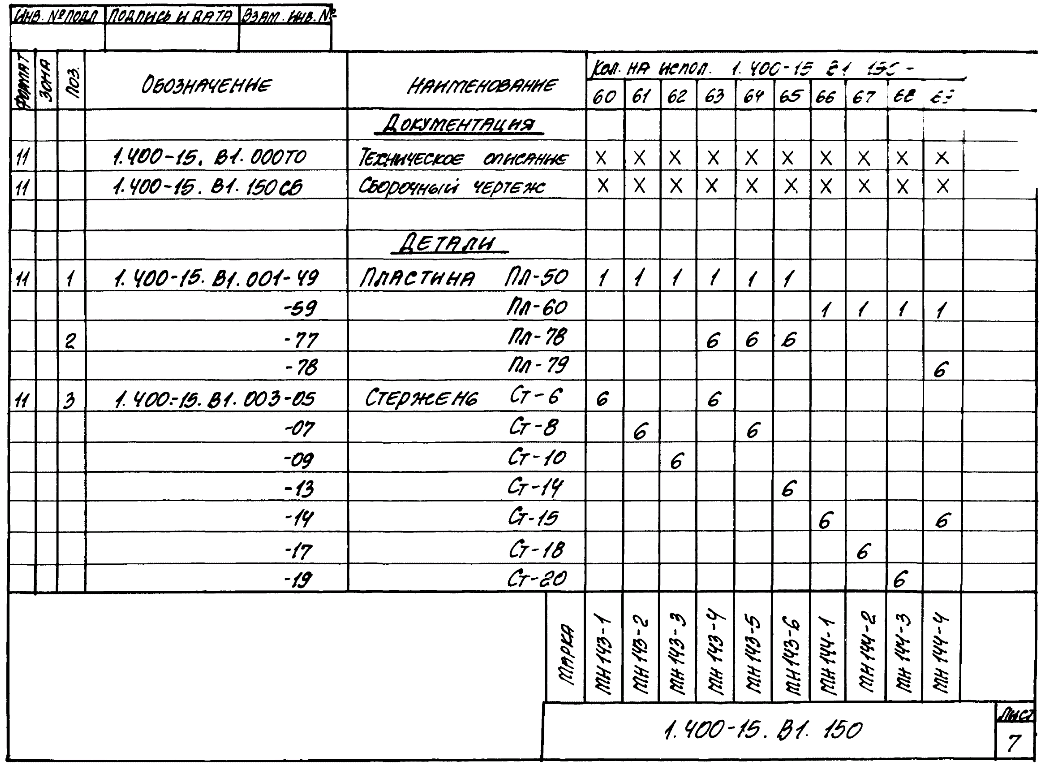 Инв. № подл Подпись и дата Взам. инв. №
Формат Зона Поз. Обозначение Наименование Кол. на испол. 1.400-15 В1 150 -
60 61 62 63 64 65 66 67 68 69
Документация
11 1.400-15. В1. 000ТО Техническое описание X X X X X X X X X X
11 1.400-15. В1. 150СБ Сборочный чертеж X X X X X X X X X X
Детали
11 1 1.400-15. В1. 001-49 Пластина Пл-50 1 1 1 1 1 1
-59 Пл-60 1 1 1 1
2 -77 Пл-78 6 6 6
-78 Пл-79 6
11 3 1.400-15. В1. 003-05 Стержень Ст-6 6 6
-07 Ст-8 6 6
-09 Ст-10 6
-13 Ст-14 6
-14 Ст-15 6 6
-17 Ст-18 6
-19 Ст-20 6
Марка МН143-1 МН143-2 МН143-3 МН143-4 МН143-5 МН143-6 МН144-1 МН144-2 МН144-3 МН144-4
1.400-15. В1. 150
Лист
7